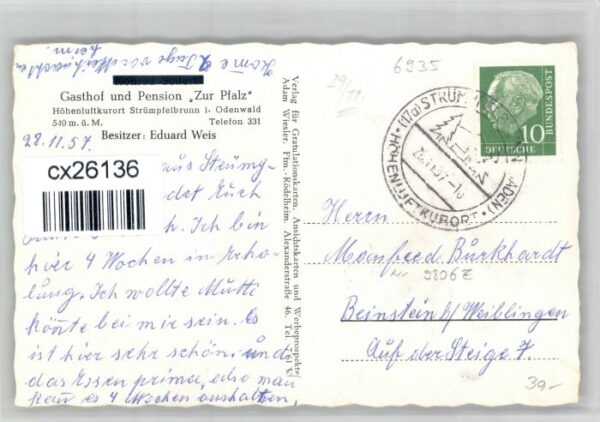 Komme 2 Tage vor Weihnachten
heim.
Gasthof und Pension „Zur Pfalz"
Höhenluftkurort Strümpfelbrunn i. Odenwald
510 m. ü. M. Telefon 331
Besitzer: Eduard Weis
28.11.57.
cx26136
aus Stümpf-
det Euch
h. Ich bin
hier 4 Wochen in Erho-
lung. Ich wollte Mutti
könnte bei mir sein. Es
ist hier sehr schön. und
das Essen prima, also man
kann es 4 Wochen aushalten.
Verlag für Gratulationskarten, Ansichtskarten und Werbeprospekte
Adam Winsler, Ffm.-Rödelheim, Alexanderstraße 46, Tel.
6935
29/11.
(17a) STRÜMPFELBRUNN
(BADEN)
HÖHENLUFTKURORT
10
DEUTSCHE
BUNDESPOST
Herrn
Manfred Burkhardt
9806 E
Beinstein b/Weiblingen
Auf der Steige 7.
39.-